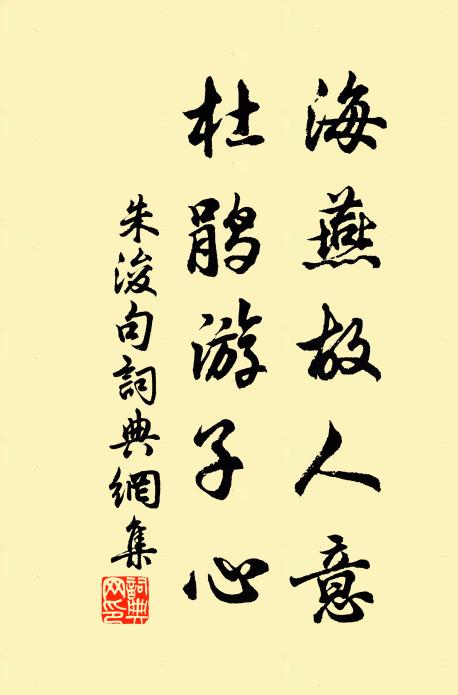 海燕故人意
杜鹃游子心
朱浚句詞典網集
詞典网印